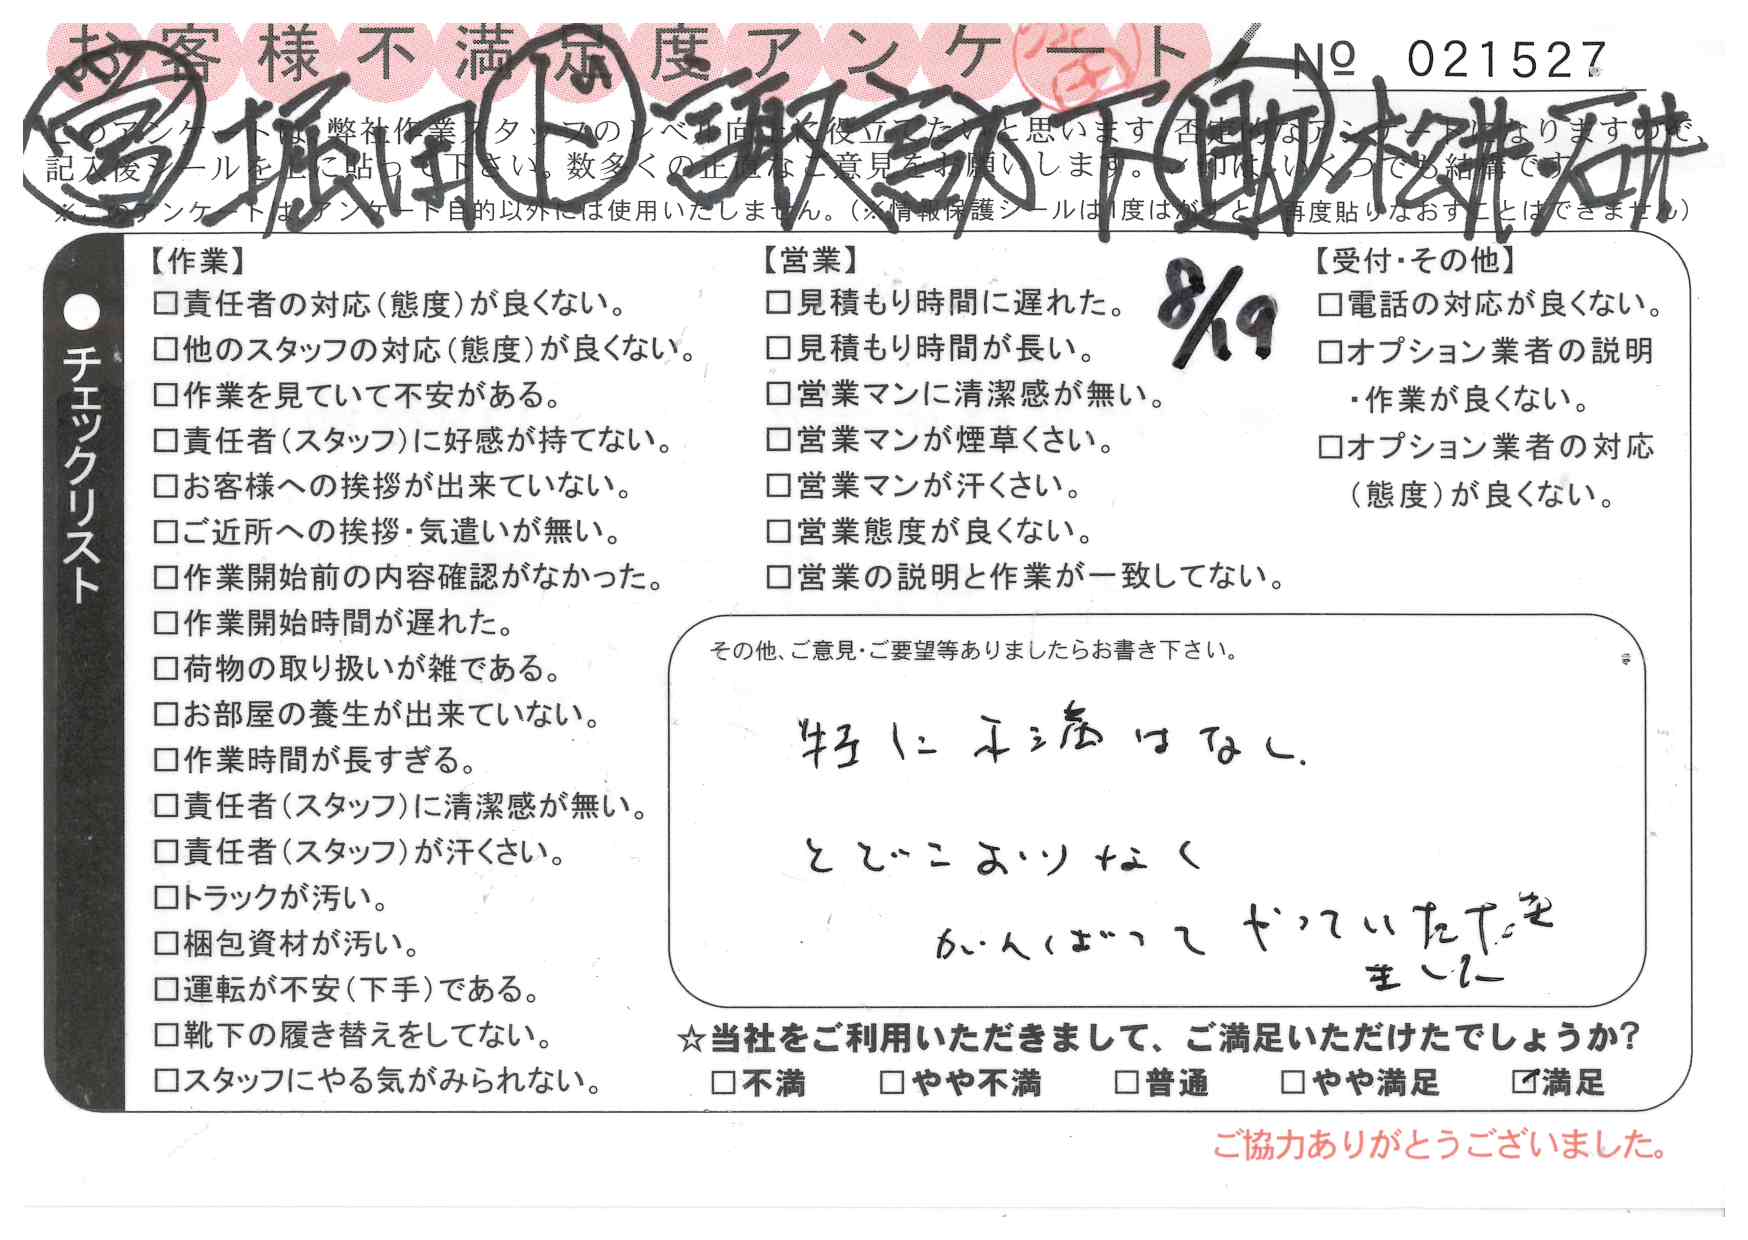 お客様不満足度アンケート
№ 021527
営 堀田 ド 下 松井 石井
このアンケートは、弊社作業スタッフのレベル向上に役立てたいと思います。否定的なアンケートになりますので、
記入後シールを上に貼って下さい。数多くの正直なご意見をお願いします。✓印は、いくつでも結構です。
※このアンケートは、アンケート目的以外には使用いたしません。（※情報保護シールは1度はがすと、再度貼りなおすことはできません）
●チェックリスト
【作業】
□責任者の対応（態度）が良くない。
□他のスタッフの対応（態度）が良くない。
□作業を見ていて不安がある。
□責任者（スタッフ）に好感が持てない。
□お客様への挨拶が出来ていない。
□ご近所への挨拶・気遣いが無い。
□作業開始前の内容確認がなかった。
□作業開始時間が遅れた。
□荷物の取り扱いが雑である。
□お部屋の養生が出来ていない。
□作業時間が長すぎる。
□責任者（スタッフ）に清潔感が無い。
□責任者（スタッフ）が汗くさい。
□トラックが汚い。
□梱包資材が汚い。
□運転が不安（下手）である。
□靴下の履き替えをしてない。
□スタッフにやる気がみられない。
【営業】
8/19
□見積もり時間に遅れた。
□見積もり時間が長い。
□営業マンに清潔感が無い。
□営業マンが煙草くさい。
□営業マンが汗くさい。
□営業態度が良くない。
□営業の説明と作業が一致してない。
【受付・その他】
□電話の対応が良くない。
□オプション業者の説明
・作業が良くない。
□オプション業者の対応
（態度）が良くない。
その他、ご意見・ご要望等ありましたらお書き下さい。
特に不満はなし.
とどこおりなく
がんばって やっていただき
ました
☆当社をご利用いただきまして、ご満足いただけたでしょうか？
□不満 □やや不満 □普通 □やや満足 ☑満足
ご協力ありがとうございました。